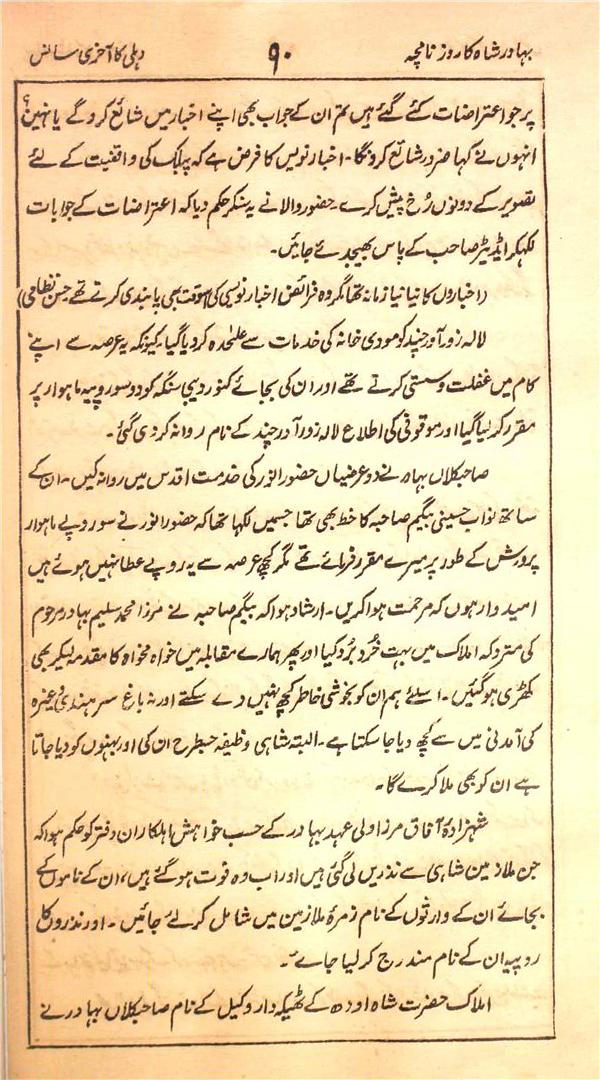 بہادر شاہ کا روزنامچہ ۹۰ دہلی کا آخری سانس
پر جو اعتراضات کئے گئے ہیں تم ان کے جواب بھی اپنے اخبار میں شائع کرو گے یا نہیں؟
انہوں نے کہا ضرور شائع کرونگا۔ اخبار نویس کا فرض ہے کہ پبلک کی واقفیت کے لئے
تصویر کے دونوں رُخ پیش کرے۔ حضور والا نے یہ سنکر حکم دیا کہ اعتراضات کے جوابات
لکھکر ایڈیٹر صاحب کے پاس بھیجدئے جائیں۔
(اخباروں کا نیا نیا زمانہ تھا مگر وہ فرائض اخبار نویسی کی اسوقت بھی پابندی کرتے تھے حسن نظامی)
لالہ زور آور چند کو مودی خانہ کی خدمات سے علٰحدہ کر دیا گیا۔ کیونکہ یہ عرصہ سے اپنے
کام میں غفلت و سستی کرتے تھے اور ان کی بجائے کنور دیبی سنگہ کو دو سو روپیہ ماہوار پر
مقرر کر لیا گیا اور موقوفی کی اطلاع لالہ زور آور چند کے نام روانہ کر دی گئی۔
صاحبکلاں بہادر نے دو عرضیاں حضور انور کی خدمت اقدس میں روانہ کیں۔ ان کے
ساتھ نواب حسینی بیگم صاحبہ کا خط بھی تھا جسمیں لکھا تھا کہ حضور انور نے سو روپے ماہوار
پرورش کے طور پر میرے مقرر فرمائے تھے مگر کچھ عرصہ سے یہ روپے عطا نہیں ہوئے ہیں
امیدوار ہوں کہ مرحمت ہوا کریں۔ ارشاد ہوا کہ بیگم صاحبہ نے مرزا محمد سلیم بہادر مرحوم
کی متروکہ املاک میں بہت خُرد بُرد کیا اور پھر ہمارے مقابلہ میں خواہ مخواہ کا مقدمہ لیکر بھی
کھڑی ہوگئیں۔ اسلئے ہم ان کو بخوشی خاطر کچھ نہیں دے سکتے اور نہ باغ سرہندی وغیرہ
کی آمدنی میں سے کچھ دیا جا سکتا ہے۔ البتہ شاہی وظیفہ جسطرح ان کی اور بہنوں کو دیا جاتا
ہے ان کو بھی ملا کرے گا۔
شہزادۂ آفاق مرزا ولی عہد بہادر کے حسب خواہش اہلکاران دفتر کو حکم ہوا کہ
جن ملازمین شاہی سے نذریں لی گئی ہیں اور اب وہ فوت ہو گئے ہیں، ان کے ناموں کے
بجائے ان کے وارثوں کے نام زمرۂ ملازمین میں شامل کر لئے جائیں۔ اور نذروں کا
روپیہ ان کے نام مندرج کر لیا جائے۔
املاک حضرت شاہ اودھ کے ٹھیکہ دار وکیل کے نام صاحبکلاں بہادر نے